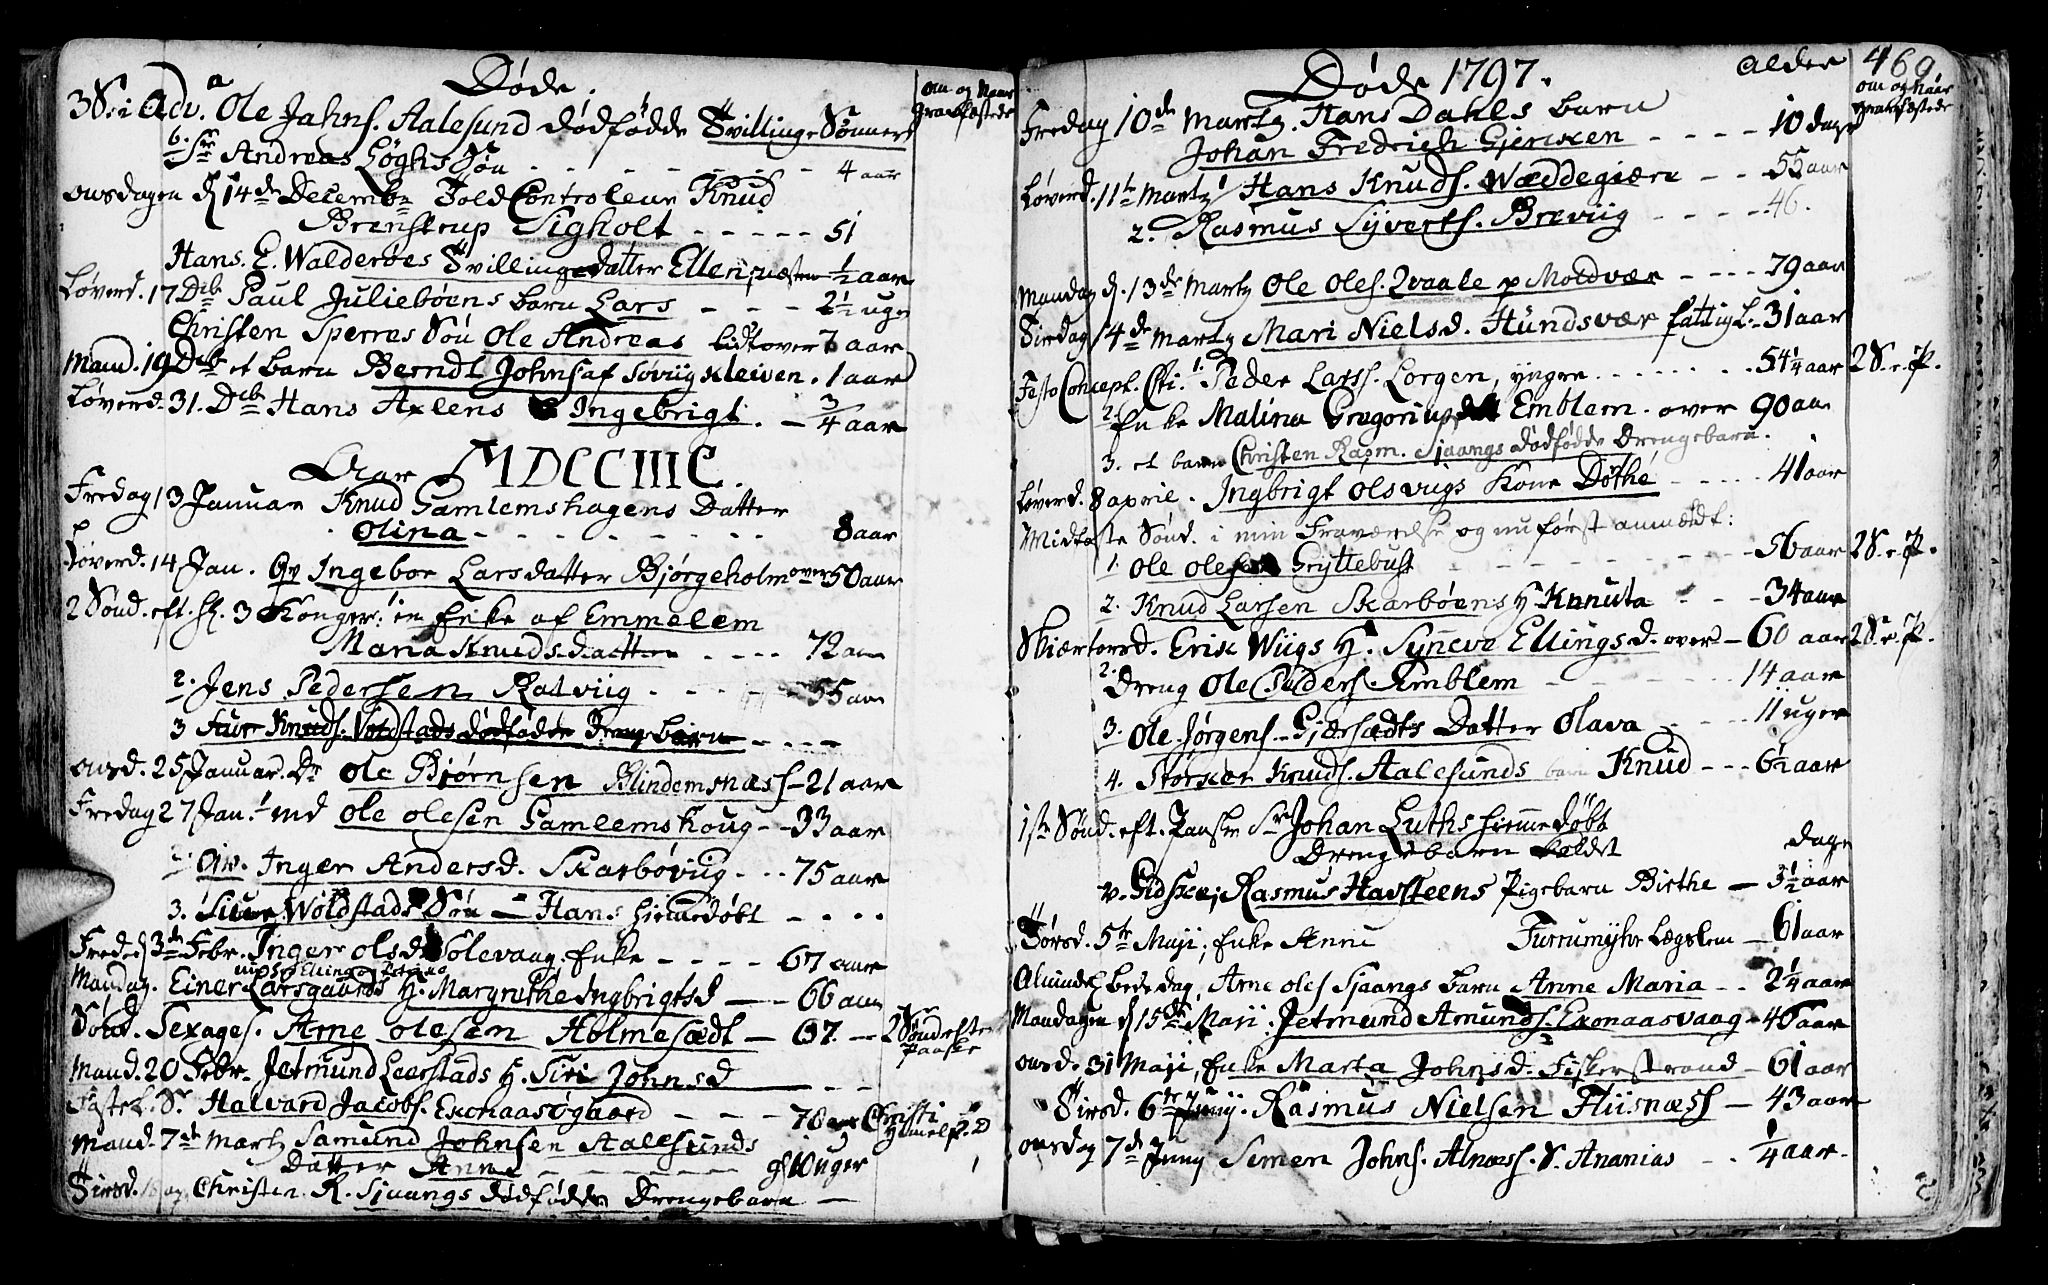 Døde.
om og Naar
Gravfæstede
3 S. i Adv. a Ole Jahns. Aalesund dødfødde Tvillinge Sønner
6. Sr Andreas Løghs Søn - - - - - - 4 aar
onsdagen d 14de Decembr Told Controleur Knud
Brenstrup Sigholt - - - - - 51
Hans. E. Walderøes Tvillingedatter Ellen; næsten 1/2 aar
Løverd. 17 Dcb Paul Juliebøens barn Lars - - - 2 1/2 uge
Christen Sperres Søn Ole Andreas lidt over 7 aar
Mand. 19 Dcb et barn Berndt Johns af Søviigkleiven. 1 aar
Løverd. 31. Dcb Hans Axlens Ingebrigt. - 3/4 aar
Aar MDCCIIIC.
Fredag 13 Januar Knud Gamlemshagens Datter
Olina - - - - - - - 8 aar
Løverd. 14 Jan. Qv Ingebor Larsdatter Bjørgeholm over 50 aar
2 Sønd. eft. H. 3 Konger: en Enke af Emmelem
Maria Knudsdatter - - - - 72 aar
2. Jens Pedersen Ratviig - - - - - 55 aar
3 Knuds. Voldstads dødfødde Drengebarn - - - -
onsd. 25 Januar. Dr Ole Bjørnsen Blindemsnæss - 21 aar
Fredag 27 Jan. 1 md Ole Olesen Gamlemshoug - - 33 aar
2. Qv. Inger Andersd. Skarbøviig - - - 75 aar
3. Woldstads Søn - Hans hiemmedøbt - - - -
Fred. d 3de Febr. Inger Olsd. Solevaag. Enke - - - - 67 aar
Mandag. Einer Larsgaards H. Margrethe Ingbrigtsd - - 66 aar
Sønd. Sexages. Arne Olesen Holmesædt - 67. - 2 Sønd efter
Paaske
Mand. 20 Febr. Jetmund Leerstads H. Siri Johnsd - -
Fastel. S. Halvard Jacobs. Exonaasøgaard - - - 78 aar Christi
Himelf. D
Mand. 7de Martz Samund Johnsen Aalesunds
Datter Anne - - - - - - 10 uger
Tirsd. Christen R. Sjaangs dødfødde Drengebarn -
Døde 1797.
alder
469
om og Naar
gravfæstede
Fredag 10de Martz. Hans Dahls barn
Johan Fredrich Gjerxen - - - - 10 dage
Løverd. 11te Martz Hans Knuds. Wæddegiærn - - 55 aar
2. Rasmus Syverts. Breviig - - - - 46.
Mandag d. 13de Martz Ole Oles. Qvaale p Moldvær - - - - 79 aar
Tirsdag 14de Martz Mari Nielsd. Hundsvær fattigl. - 31 aar
Festo Concept. Chri. 1. Peder Larss. Lorgen, yngre . . . . . . . 54 1/4 aar 2 S. e. P.
2. Enke Malina Gregoriusd. Emblem. over 90 aar
3. et barn Christen Rasm. Sjaangs dødfødde Drengebarn.
Løverd. 8 aprie. Ingbrigt Olsvigs Kone Døthe - - - - - 41 aar
Midfaste Sønd. i min Fraværelse og nu først anmældt:
1. Ole Olesen Gryttebust - - - - - - - - 56 aar 2 S. e. P.
2. Knud Larsen Skarbøens H. Knnuta - - - 34 aar
Skiærtorsd. Erik Wiigs H. Syneve Ellingsd. over - 60 aar 2 S. e. P.
2. Dreng Ole Peders. Emblem - - - - - - - 14 aar
3. Ole Jørgens. Gjærsædts Datter Olava - - - - 11 uger
4. Storker Knuds. Aalesunds barn Knud - - - 6 1/2 aar
1ste Sønd. eft. Paaske Sr Johan Luths hiemmedøbt
Drengebarn kaldet dage
v. Gidske; Rasmus Havsteens Pigebarn Birthe - 3 1/2 aar
Torsd. 5te Maji, Enke Anne Furrumyhr Lægslem - 61 aar
Almindel. bededag, Arne Oles Sjaangs barn Anne Maria - - 2 1/4 aar
Mandagen d 15de Maji: Jetmund Amunds. Exonaasvaag - 46 aar
onsd. 31 Maji, Enke Marta Johnsd. Fiskerstrand - 61 aar
Tirsd. 6te Junij. Rasmus Nielsen Fliisnæss - 43 aar
onsdag 7de Juny Simen Johns. Alnæss. S. Ananias - - 1/4 aar.